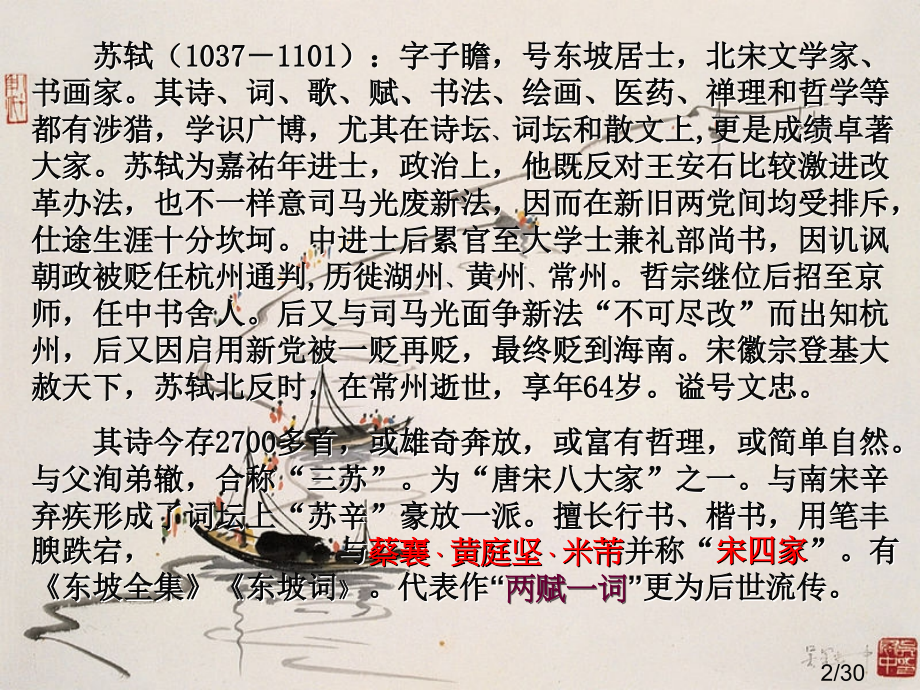 苏轼（1037－1101）：字子瞻，号东坡居士，北宋文学家、
书画家。其诗、词、歌、赋、书法、绘画、医药、禅理和哲学等
都有涉猎，学识广博，尤其在诗坛、词坛和散文上,更是成绩卓著
大家。苏轼为嘉祐年进士，政治上，他既反对王安石比较激进改
革办法，也不一样意司马光废新法，因而在新旧两党间均受排斥，
仕途生涯十分坎坷。中进士后累官至大学士兼礼部尚书，因讥讽
朝政被贬任杭州通判,历徙湖州、黄州、常州。哲宗继位后招至京
师，任中书舍人。后又与司马光面争新法“不可尽改”而出知杭
州，后又因启用新党被一贬再贬，最终贬到海南。宋徽宗登基大
赦天下，苏轼北反时，在常州逝世，享年64岁。谥号文忠。
其诗今存2700多首，或雄奇奔放，或富有哲理，或简单自然。
与父洵弟辙，合称“三苏”。为“唐宋八大家”之一。与南宋辛
弃疾形成了词坛上“苏辛”豪放一派。擅长行书、楷书，用笔丰
腴跌宕，与蔡襄、黄庭坚、米芾并称“宋四家”。有
《东坡全集》《东坡词》。代表作“两赋一词”更为后世流传。
2/30